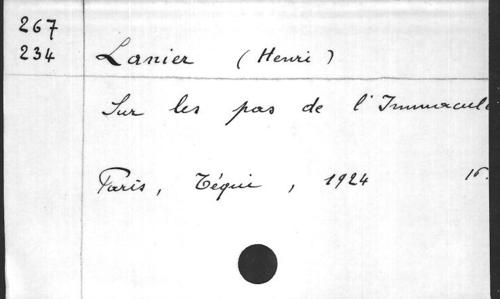 267
234 Lanier (Henri)
Sur les pas de l'Immaculé
Paris, Téqui, 1924 16.